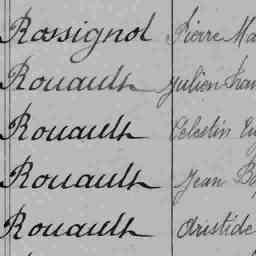 Rossignol Pierre Ma
Rouault Julien Fran
Rouault Célestin Eug
Rouault Jean Bap
Rouault Aristide